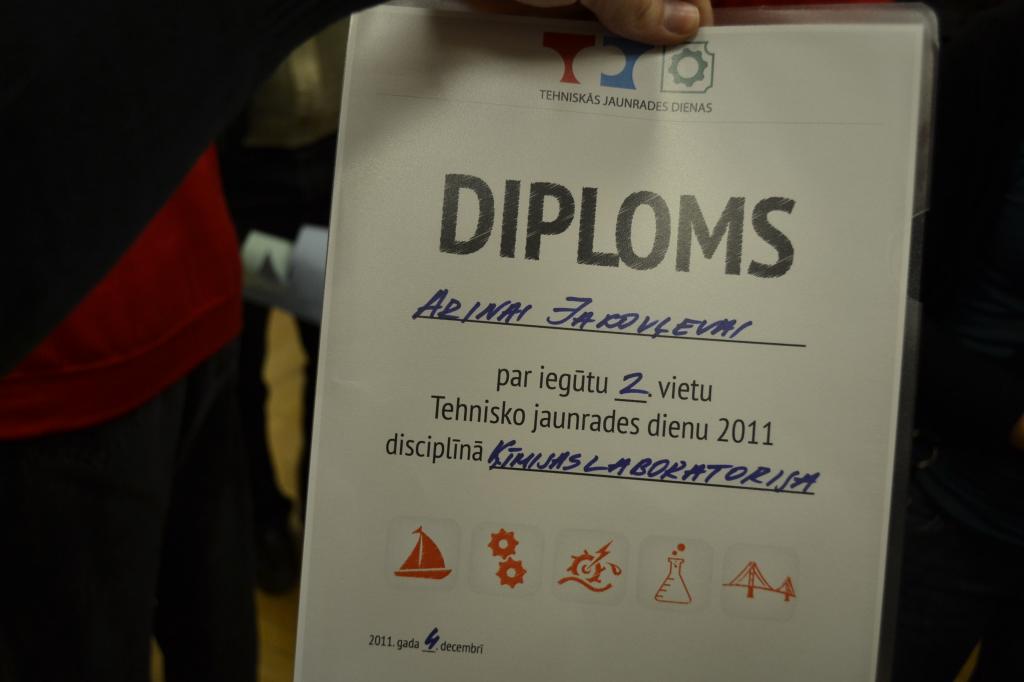 TEHNISKĀS JAUNRADES DIENAS
DIPLOMS
ARINAI JAKOVĻEVAI
par iegūtu 2. vietu
Tehnisko jaunrades dienu 2011
disciplīnā ĶĪMIJAS LABORATORIJA
2011. gada 4. decembrī